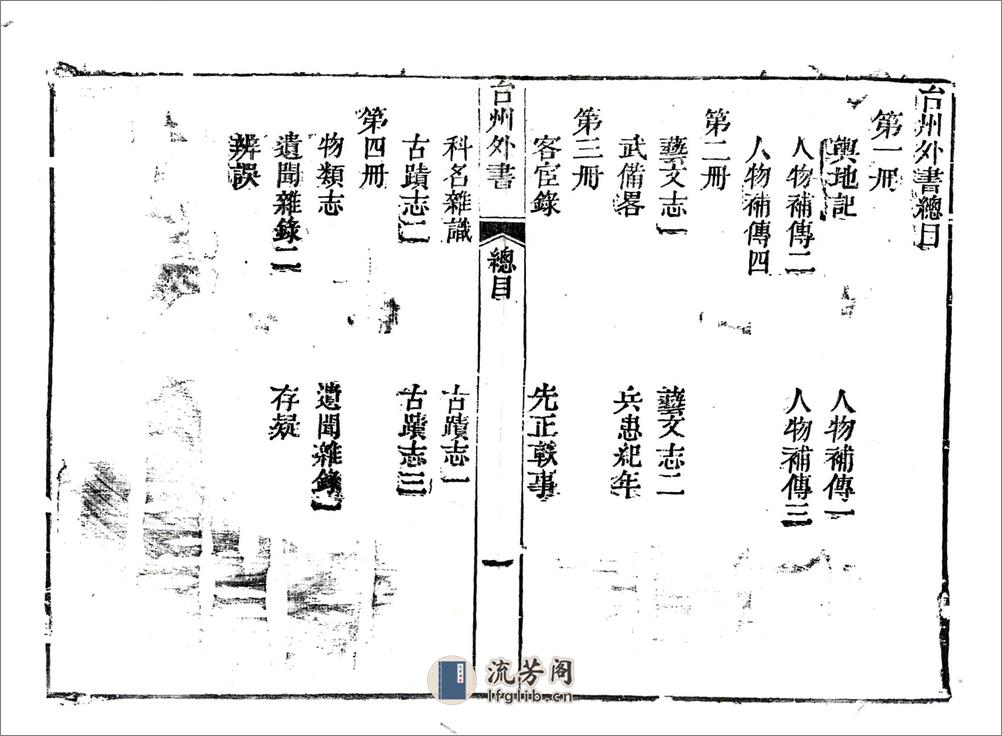 台州外書總目
第一冊
輿地記 人物補傳一
人物補傳二 人物補傳三
人物補傳四
第二冊
藝文志一 藝文志二
武備畧 兵患紀年
第三冊
客宦錄 先正軼事
台州外書 總目 一
科名雜識 古蹟志一
古蹟志二 古蹟志三
第四冊
物類志 遺聞雜錄一
遺聞雜錄二 存疑
辨誤
流芳阁
lfglib.cn